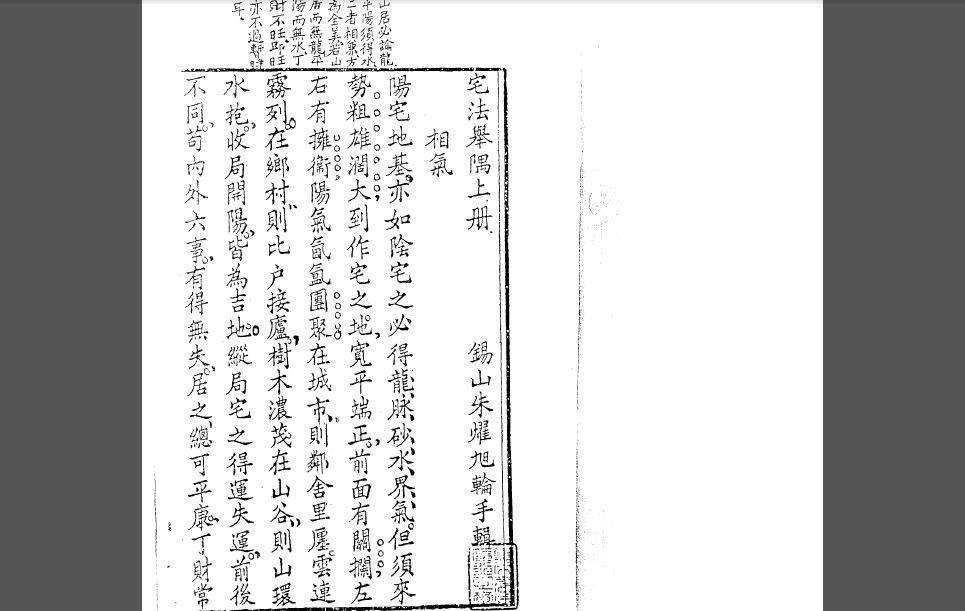 宅法舉隅上册　錫山朱燿旭輪手輯
相氣
陽宅地基亦如陰宅之必得龍脉砂水界氣但須來
勢粗雄濶大到作宅之地寬平端正前面有關攔左
右有擁衞陽氣氤氳團聚在城市則鄰舍里㕓雲連
霧列在鄉村則比户接廬樹木濃茂在山谷則山環
水抱收局開陽皆為吉地縱局宅之得運失運前後
不同苟内外六事有得無失居之總可平康丁財常
山居必論龍
平陽須得水
二者相兼方
為全美若山
居而無龍平
陽而無水丁
財不旺即旺
亦不過暫時
年